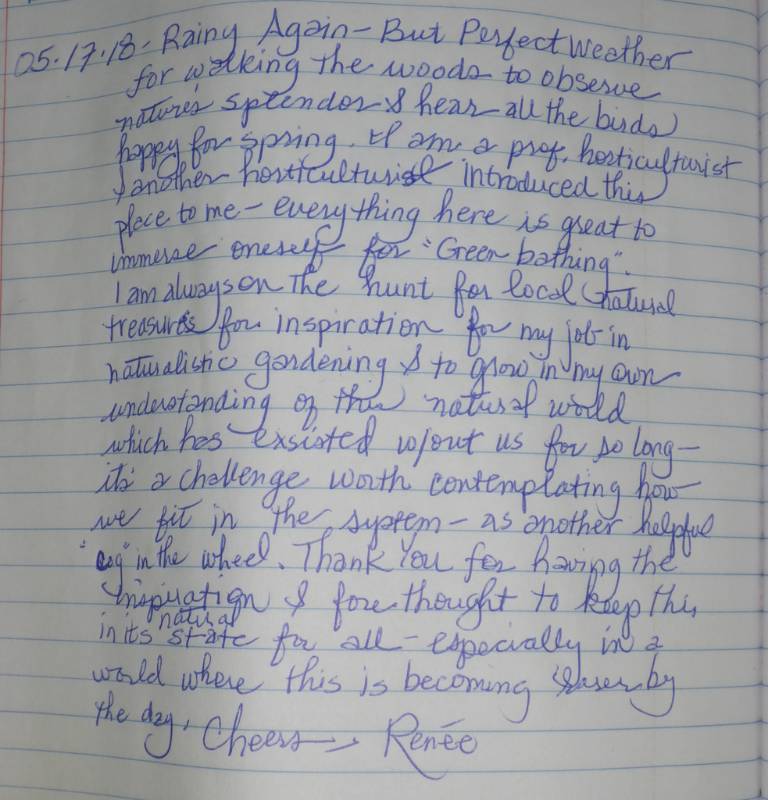 05.17.18 - Rainy Again - But Perfect Weather
for walking the woods to observe
nature's splendor & hear all the birds
happy for spring. I am a prof. horticulturist
& another horticulturist introduced this
place to me - everything here is great to
immerse oneself for "Green bathing".
I am always on the hunt for local natural
treasures for inspiration for my job in
naturalistic gardening & to grow in my own
understanding of this natural world
which has exsisted w/out us for so long -
it's a challenge worth contemplating how
we fit in the system - as another helpful
"cog" in the wheel. Thank You for having the
inspiration & forethought to keep this
in its natural state for all - especially in a
world where this is becoming rarer by
the day. Cheers, Renée